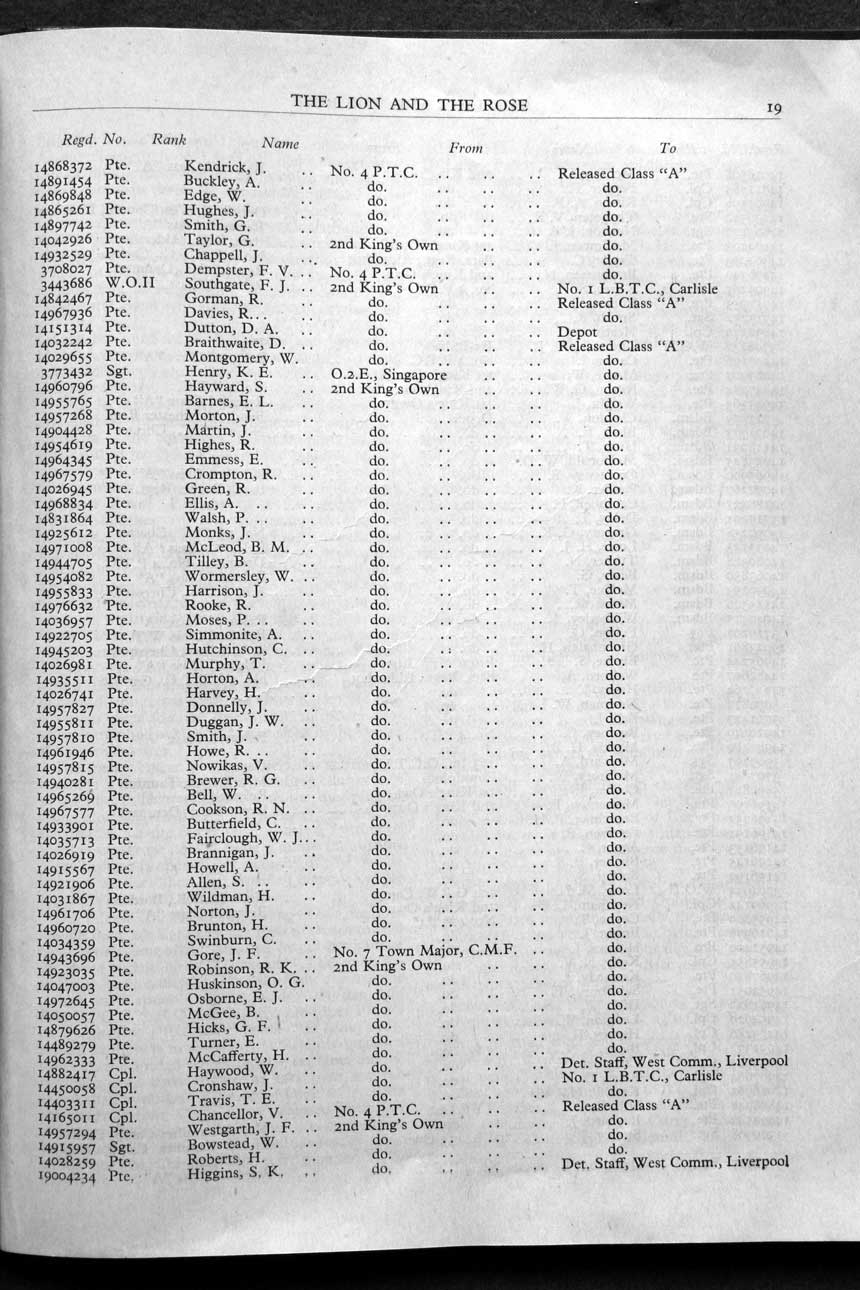 THE LION AND THE ROSE 19
Regd. No. Rank Name From To
14868372 Pte. Kendrick, J. .. No. 4 P.T.C. .. .. .. Released Class “A”
14891454 Pte. Buckley, A. .. do. .. .. .. do.
14869848 Pte. Edge, W. .. do. .. .. .. do.
14865261 Pte. Hughes, J. .. do. .. .. .. do.
14897742 Pte. Smith, G. .. do. .. .. .. do.
14042926 Pte. Taylor, G. .. 2nd King's Own .. .. do.
14932529 Pte. Chappell, J. .. do. .. .. .. do.
3708027 Pte. Dempster, F. V. .. No. 4 P.T.C. .. .. .. do.
3443686 W.O.II Southgate, F. J. .. 2nd King's Own .. .. No. 1 L.B.T.C., Carlisle
14842467 Pte. Gorman, R. .. do. .. .. .. Released Class “A”
14967936 Pte. Davies, R... .. do. .. .. .. do.
14151314 Pte. Dutton, D. A. .. do. .. .. .. Depot
14032242 Pte. Braithwaite, D. .. do. .. .. .. Released Class “A”
14029655 Pte. Montgomery, W. do. .. .. .. do.
3773432 Sgt. Henry, K. E. .. O.2.E., Singapore .. .. do.
14960796 Pte. Hayward, S. .. 2nd King's Own .. .. do.
14955765 Pte. Barnes, E. L. .. do. .. .. .. do.
14957268 Pte. Morton, J. .. do. .. .. .. do.
14904428 Pte. Martin, J. .. do. .. .. .. do.
14954619 Pte. Highes, R. .. do. .. .. .. do.
14964345 Pte. Emmess, E. .. do. .. .. .. do.
14967579 Pte. Crompton, R. .. do. .. .. .. do.
14026945 Pte. Green, R. .. do. .. .. .. do.
14968834 Pte. Ellis, A. .. .. do. .. .. .. do.
14831864 Pte. Walsh, P. .. .. do. .. .. .. do.
14925612 Pte. Monks, J. .. do. .. .. .. do.
14971008 Pte. McLeod, B. M. .. do. .. .. .. do.
14944705 Pte. Tilley, B. .. do. .. .. .. do.
14954082 Pte. Wormersley, W. .. do. .. .. .. do.
14955833 Pte. Harrison, J. .. do. .. .. .. do.
14976632 Pte. Rooke, R. .. do. .. .. .. do.
14036957 Pte. Moses, P. .. .. do. .. .. .. do.
14922705 Pte. Simmonite, A. .. do. .. .. .. do.
14945203 Pte. Hutchinson, C. .. do. .. .. .. do.
14026981 Pte. Murphy, T. .. do. .. .. .. do.
14935511 Pte. Horton, A. .. do. .. .. .. do.
14026741 Pte. Harvey, H. .. do. .. .. .. do.
14957827 Pte. Donnelly, J. .. do. .. .. .. do.
14955811 Pte. Duggan, J. W. .. do. .. .. .. do.
14957810 Pte. Smith, J. .. do. .. .. .. do.
14961946 Pte. Howe, R. .. .. do. .. .. .. do.
14957815 Pte. Nowikas, V. .. do. .. .. .. do.
14940281 Pte. Brewer, R. G. .. do. .. .. .. do.
14965269 Pte. Bell, W. .. .. do. .. .. .. do.
14967577 Pte. Cookson, R. N. .. do. .. .. .. do.
14933901 Pte. Butterfield, C. .. do. .. .. .. do.
14035713 Pte. Fairclough, W. J... do. .. .. .. do.
14026919 Pte. Brannigan, J. .. do. .. .. .. do.
14915567 Pte. Howell, A. .. do. .. .. .. do.
14921906 Pte. Allen, S. .. .. do. .. .. .. do.
14031867 Pte. Wildman, H. .. do. .. .. .. do.
14961706 Pte. Norton, J. .. do. .. .. .. do.
14960720 Pte. Brunton, H. .. do. .. .. .. do.
14034359 Pte. Swinburn, C. .. do. .. .. .. do.
14943696 Pte. Gore, J. F. .. No. 7 Town Major, C.M.F. .. do.
14923035 Pte. Robinson, R. K. .. 2nd King's Own .. .. do.
14047003 Pte. Huskinson, O. G. do. .. .. .. do.
14972645 Pte. Osborne, E. J. .. do. .. .. .. do.
14050057 Pte. McGee, B. .. do. .. .. .. do.
14879626 Pte. Hicks, G. F. .. do. .. .. .. do.
14489279 Pte. Turner, E. .. do. .. .. .. do.
14962333 Pte. McCafferty, H. .. do. .. .. .. do.
14882417 Cpl. Haywood, W. .. do. .. .. .. Det. Staff, West Comm., Liverpool
14450058 Cpl. Cronshaw, J. .. do. .. .. .. No. 1 L.B.T.C., Carlisle
14403311 Cpl. Travis, T. E. .. do. .. .. .. do.
14165011 Cpl. Chancellor, V. .. No. 4 P.T.C. .. .. .. Released Class “A”
14957294 Pte. Westgarth, J. F. .. 2nd King's Own .. .. do.
14915957 Sgt. Bowstead, W. .. do. .. .. .. do.
14028259 Pte. Roberts, H. .. do. .. .. .. do.
19004234 Pte. Higgins, S. K. .. do. .. .. .. Det. Staff, West Comm., Liverpool